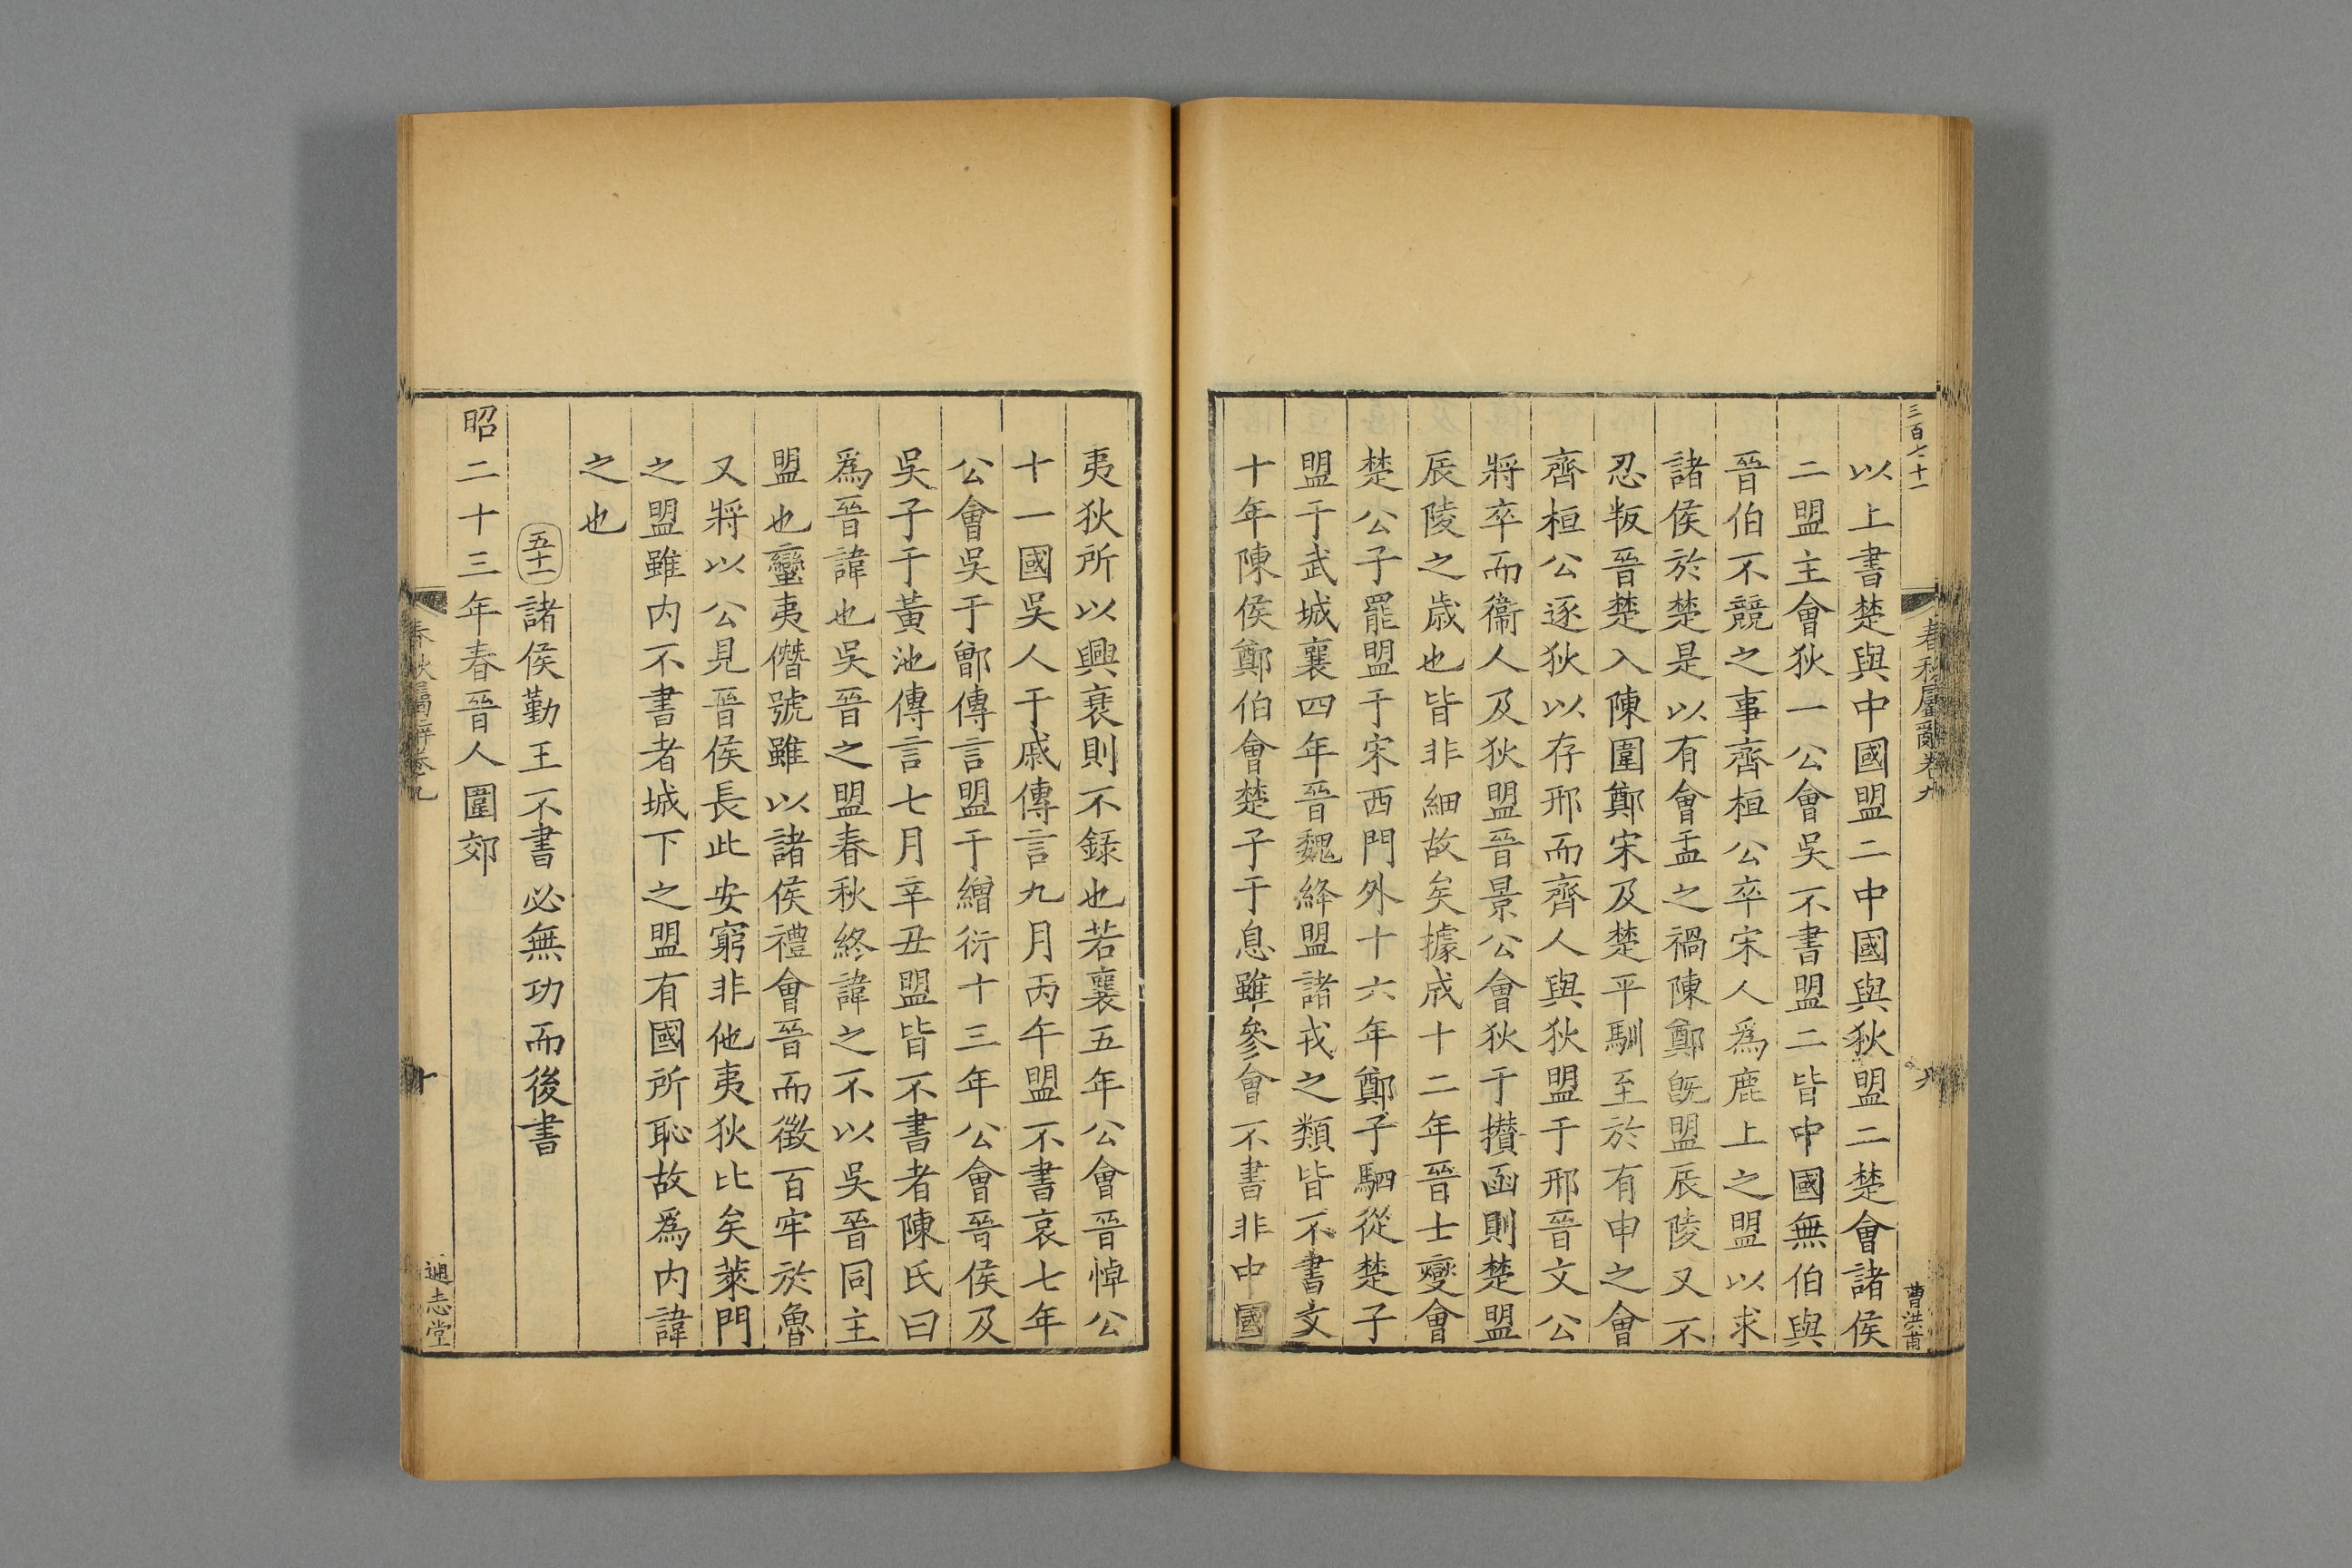 三百七十一
春秋屬辭卷九
九
曹洪甫
以上書楚與中國盟二中國與狄盟二楚會諸侯
二盟主會狄一公會吳不書盟二皆中國無伯與
晉伯不競之事齊桓公卒宋人爲鹿上之盟以求
諸侯於楚是以有會盂之禍陳鄭旣盟辰陵又不
忍叛晉楚入陳圍鄭宋及楚平馴至於有申之會
齊桓公逐狄以存邢而齊人與狄盟于邢晉文公
將卒而衞人及狄盟晉景公會狄于攅函則楚盟
辰陵之歲也皆非細故矣據成十二年晉士燮會
楚公子罷盟于宋西門外十六年鄭子駟從楚子
盟于武城襄四年晉魏絳盟諸戎之類皆不書文
十年陳侯鄭伯會楚子于息雖參會不書非中國
夷狄所以興衰則不錄也若襄五年公會晉悼公
十一國吳人于戚傳言九月丙午盟不書哀七年
公會吳于鄫傳言盟于繒衍十三年公會晉侯及
吳子于黃池傳言七月辛丑盟皆不書者陳氏曰
爲晉諱也吳晉之盟春秋終諱之不以吳晉同主
盟也蠻夷僭號雖以諸侯禮會晉而徵百牢於魯
又將以公見晉侯長此安窮非他夷狄比矣萊門
之盟雖内不書者城下之盟有國所恥故爲内諱
之也
五十一 諸侯勤王不書必無功而後書
昭二十三年春晉人圍郊
春秋屬辭卷九
十
通志堂